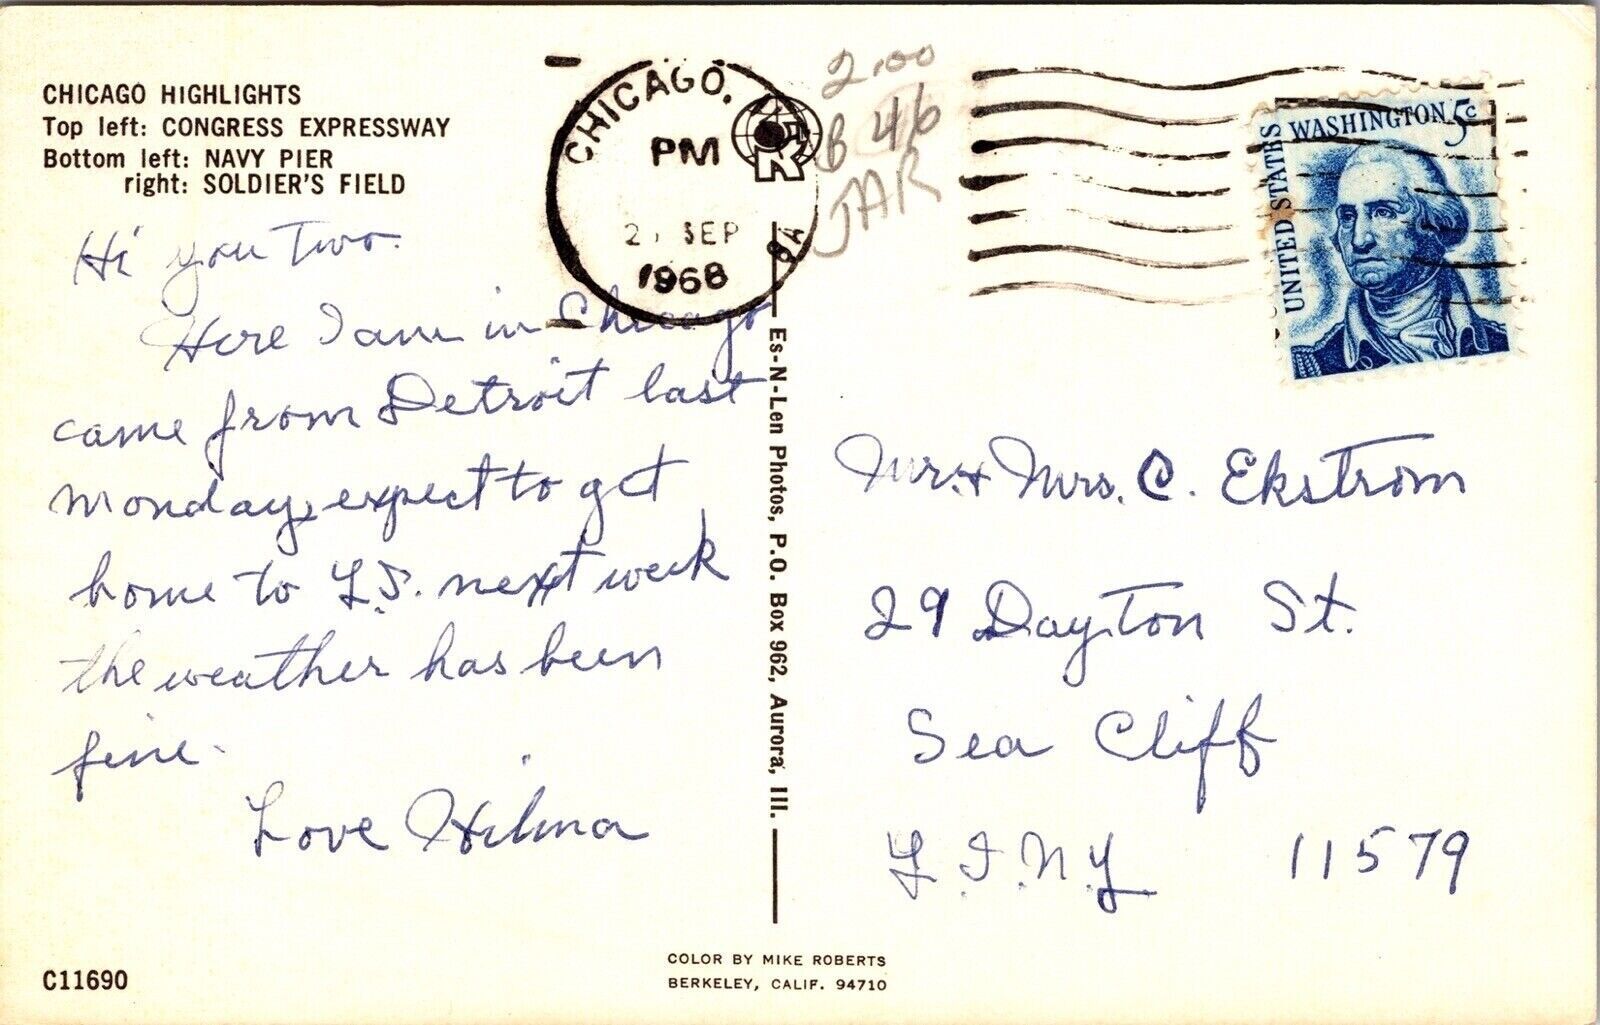 CHICAGO HIGHLIGHTS
Top left: CONGRESS EXPRESSWAY
Bottom left: NAVY PIER
right: SOLDIER'S FIELD
Hi you Two.
Here I am in Chicago
came from Detroit last
monday, expect to get
home to L.I. next week
the weather has been
fine.
Love Hilma
C11690
CHICAGO,
PM
SEP
1968
2.00
B 46
JAR
Es-N-Len Photos, P.O. Box 962, Aurora, Ill.
UNITED STATES
WASHINGTON 5c
Mr. + Mrs. C. Ekstrom
29 Dayton St.
Sea Cliff
L.I. N.Y 11579
COLOR BY MIKE ROBERTS
BERKELEY, CALIF. 94710